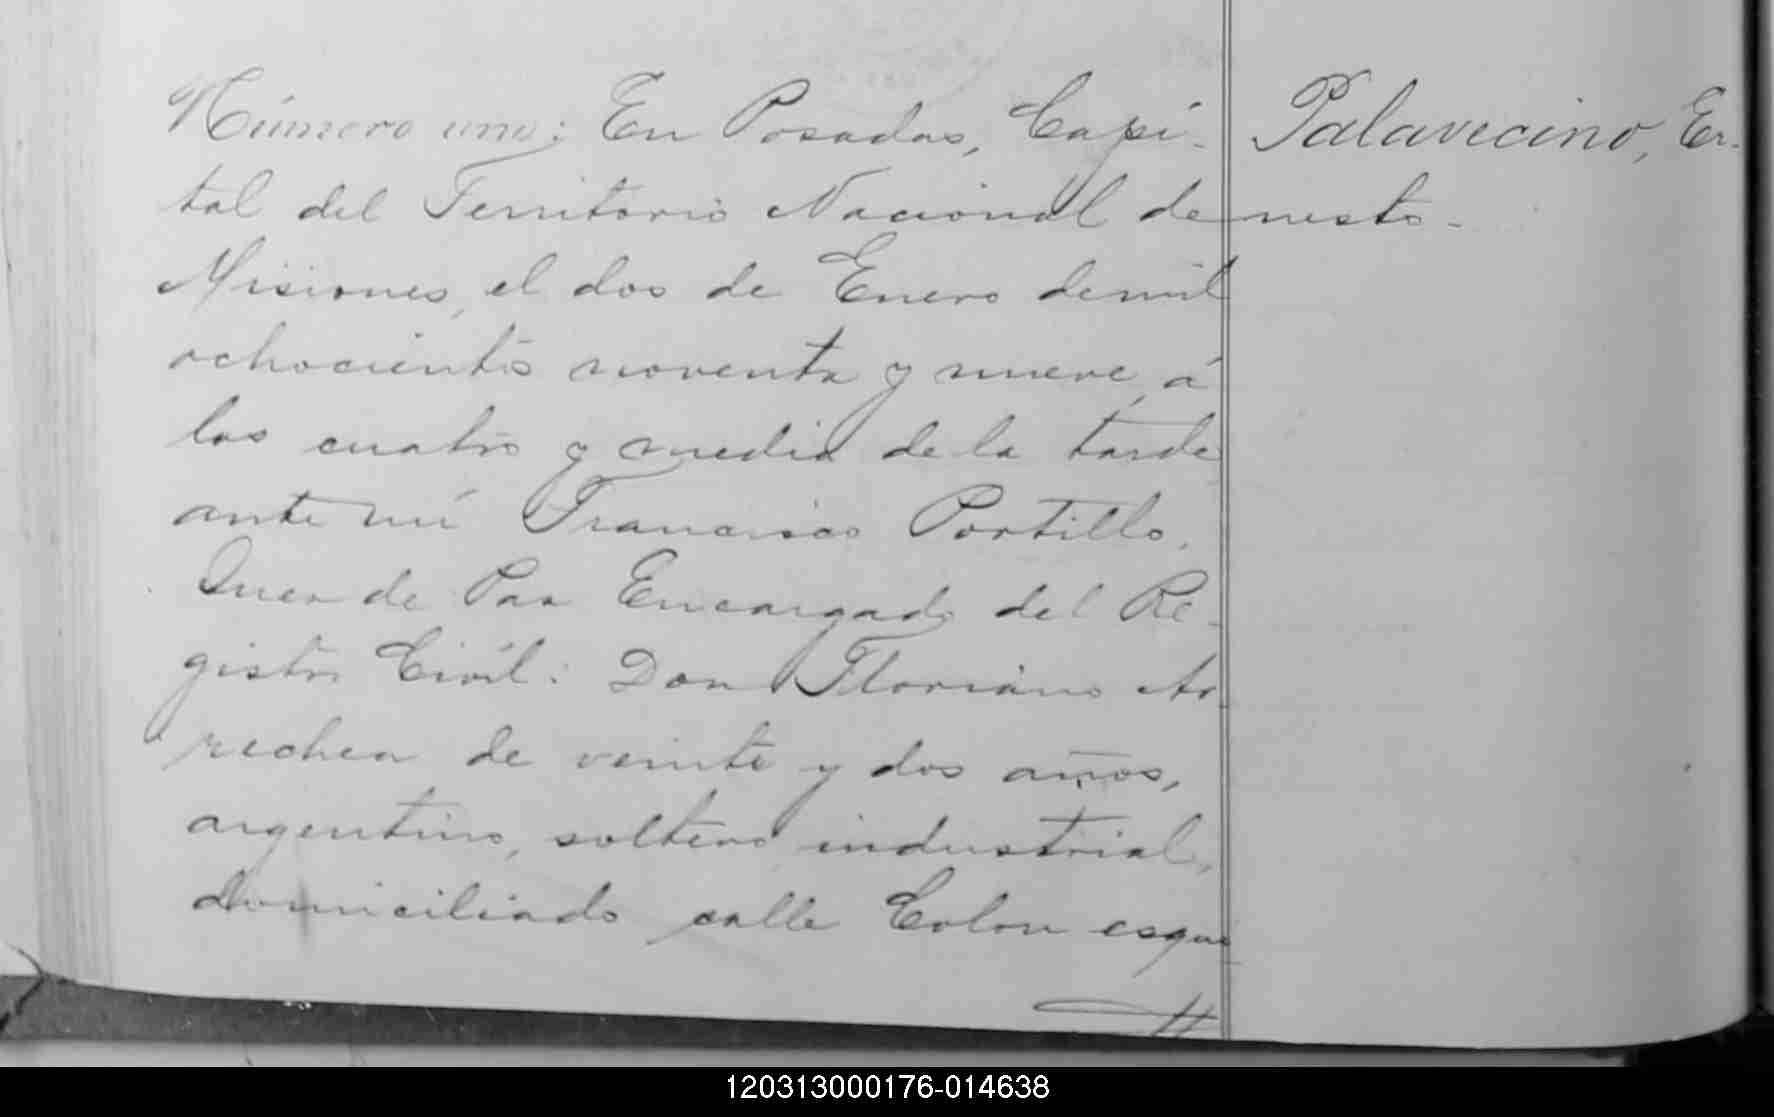 Número uno: En Posadas, Capi-
tal del Territorio Nacional de
Misiones, el dos de Enero de mil
ochocientos noventa y nueve, á
las cuatro y media de la tarde
ante mí Francisco Portillo,
Juez de Paz Encargado del Re-
gistro Civil: Don Floriano Ar-
rechea de veinte y dos años,
argentino, soltero, industrial,
domiciliado calle Colon esqui
Palavecino, Er-
nesto-
120313000176-014638